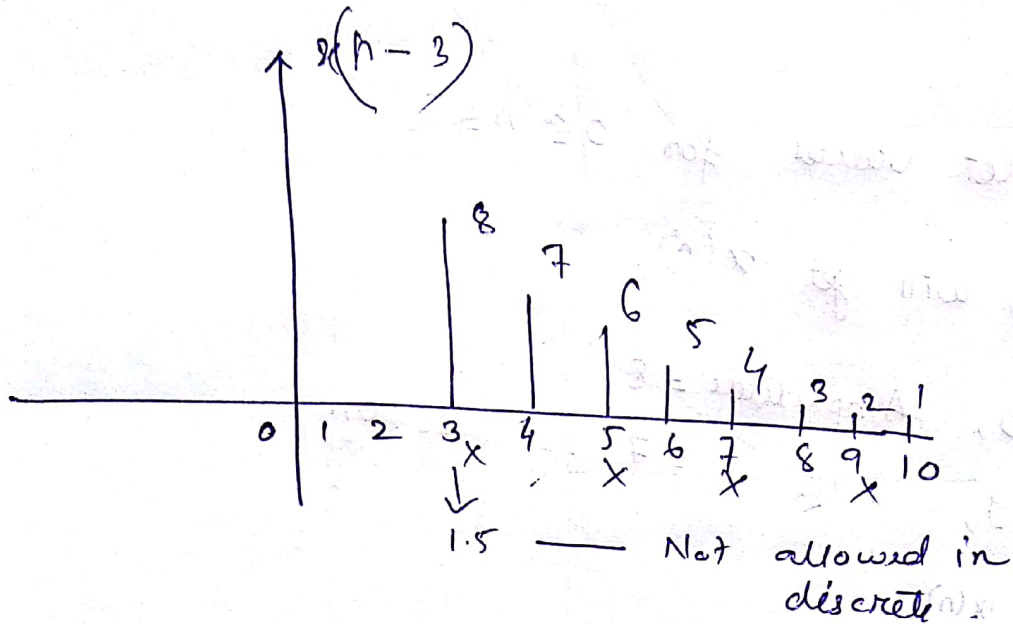 x(n - 3)
8
7
6
5
4
3
2
1
0 1 2 3 4 5 6 7 8 9 10
x x x x
1.5 — Not allowed in
discrete.